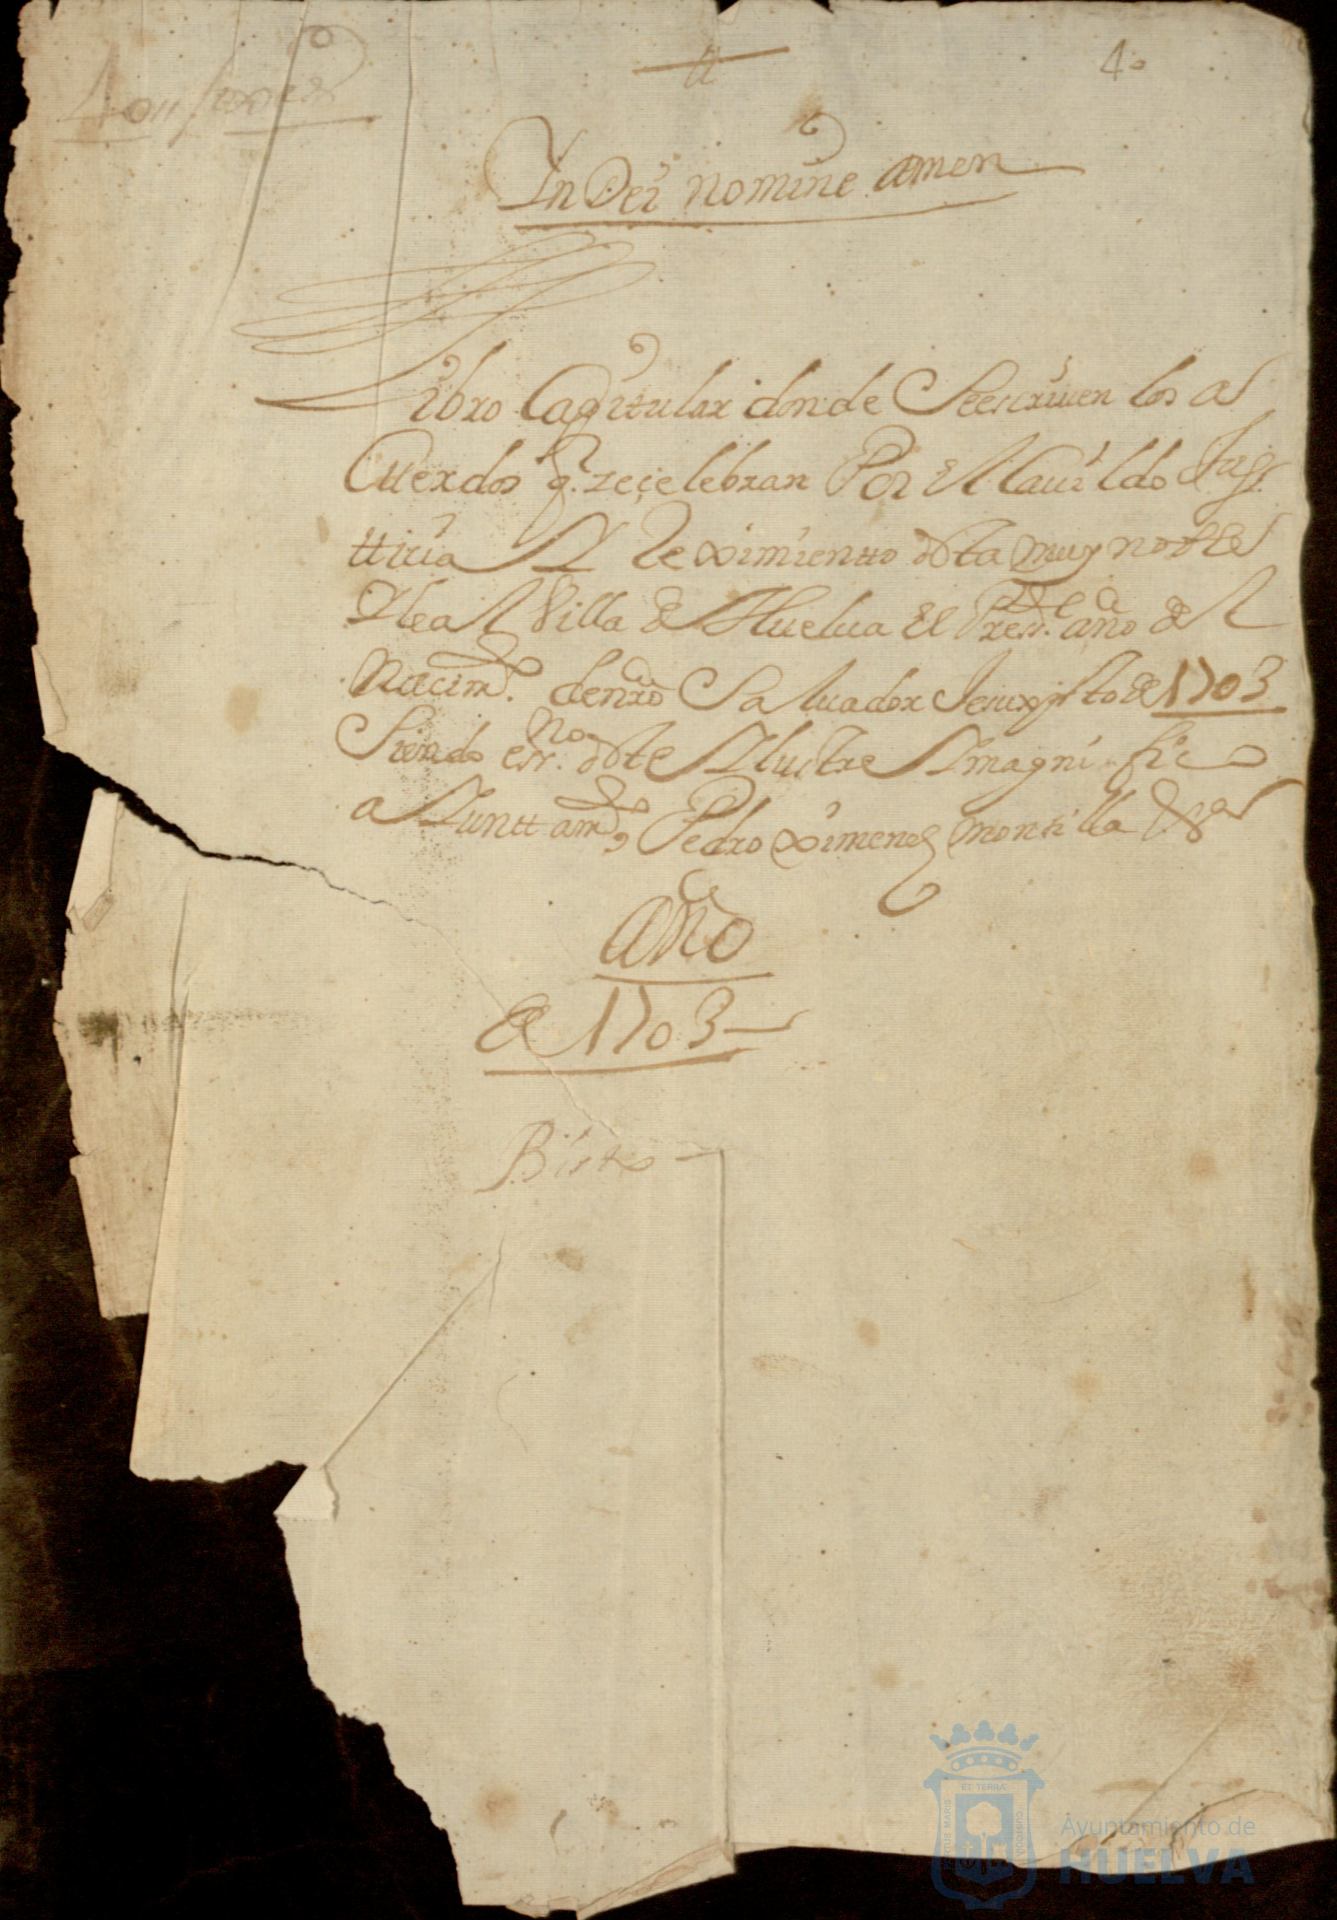 a
4º
In Dei nomine amen
Libro Capitular donde Seescriuen los a
Cuerdos q. seçelebran Por el Cauildo Jus
tticia Y Reximientto desta muy noble
Y leal Villa de Huelua el Presᵗᵉ. año del
Nacimᵗᵒ. denrō Saluador Jesuxpto de 1703
Siendo essⁿᵒ. deste Yllustre Y magnifico
a Yunttamᵗᵒ, Pedro Ximenez montilla
año
de 1703
Visto
ET TERRAE
PORTUS MARIS
CUSTODIA
Ayuntamiento de
HUELVA